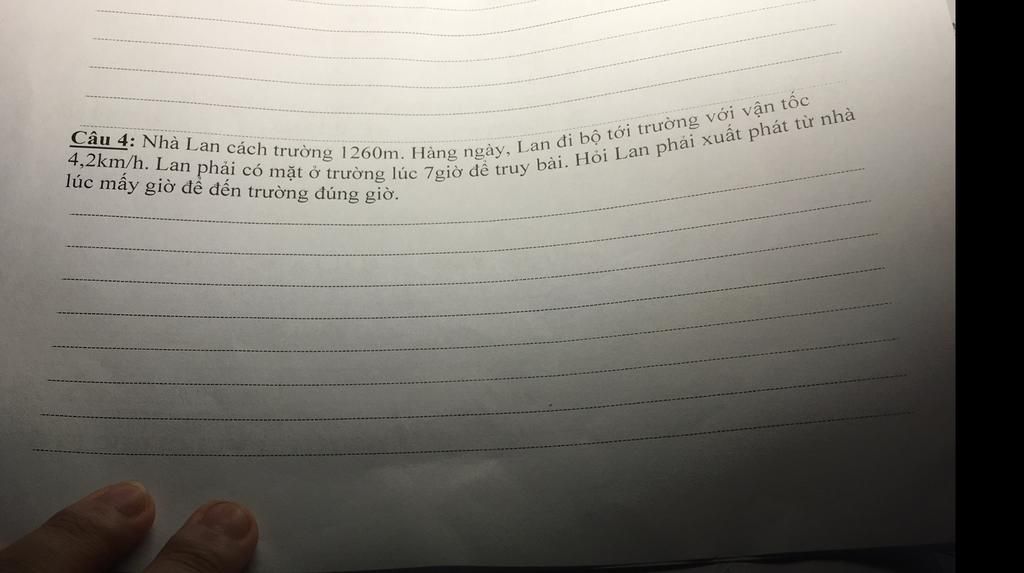 Câu 4: Nhà Lan cách trường 1260m. Hàng ngày, Lan đi bộ tới trường với vận tốc
4,2km/h. Lan phải có mặt ở trường lúc 7giờ để truy bài. Hỏi Lan phải xuất phát từ nhà
lúc mấy giờ để đến trường đúng giờ.